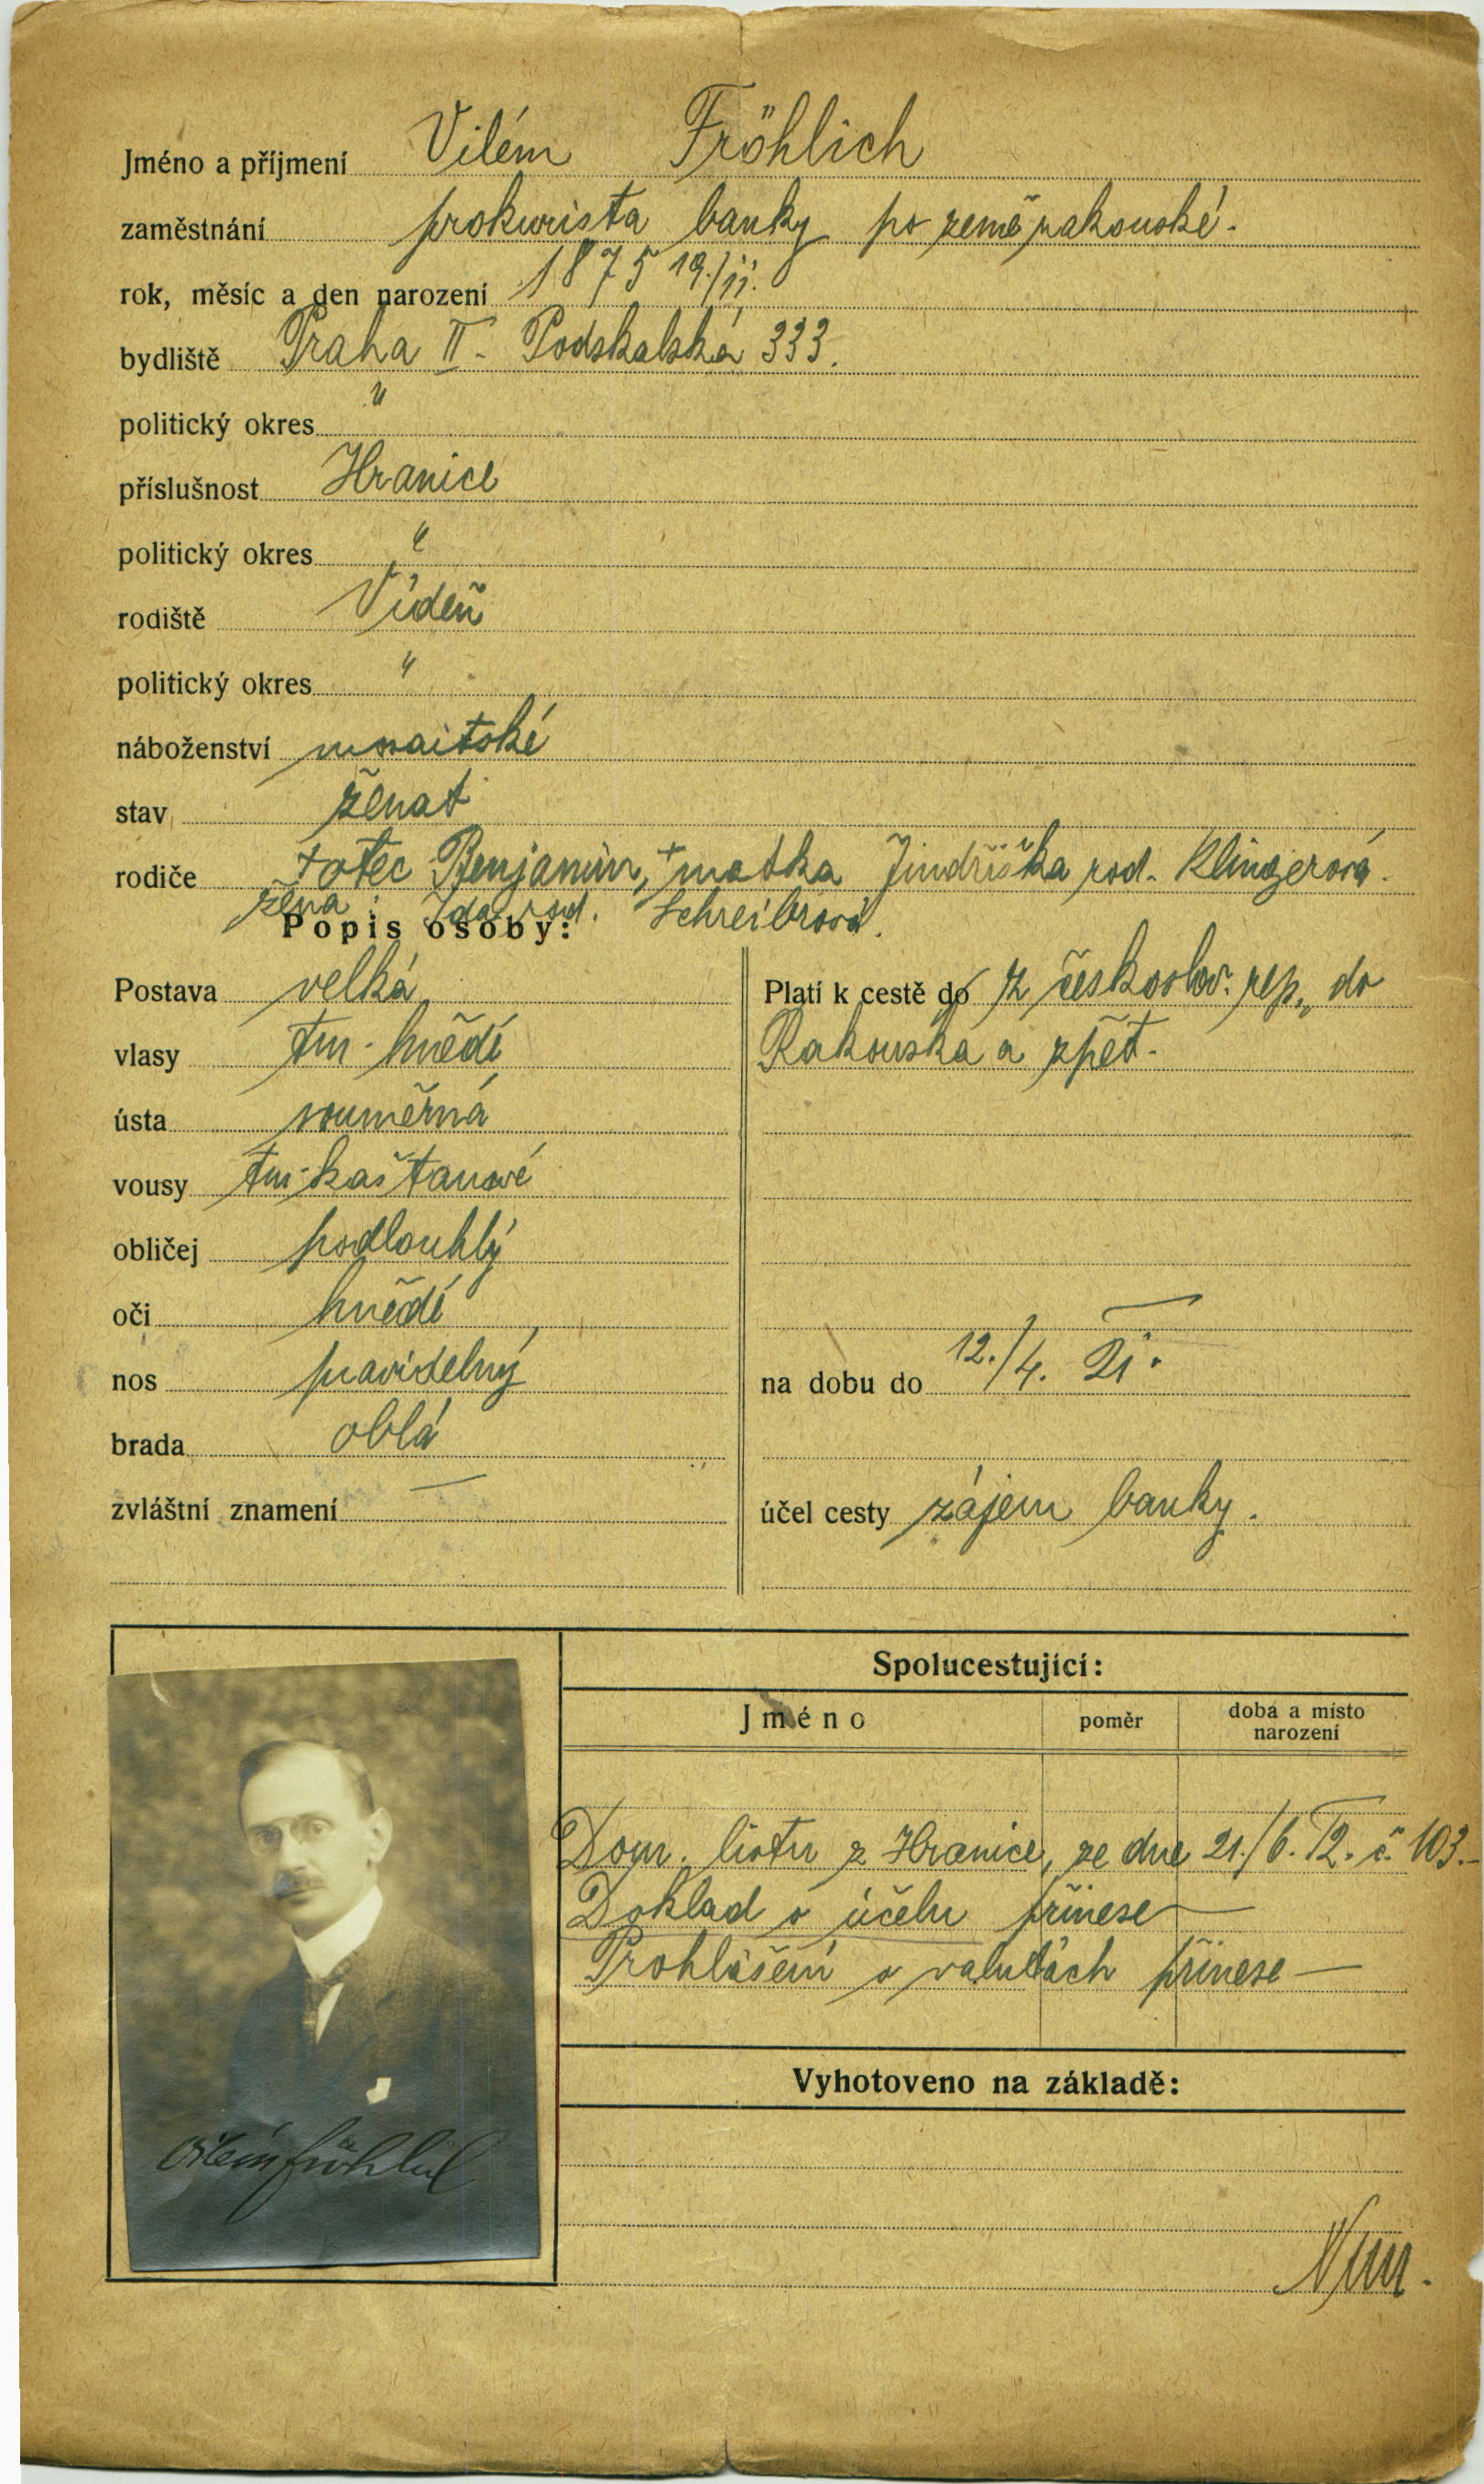 Jméno a příjmení Vilém Fröhlich
zaměstnání prokurista banky po země rakouské.
rok, měsíc a den narození 1875 19./11.
bydliště Praha II. Podskalská 333.
politický okres "
příslušnost Hranice
politický okres "
rodiště Vídeň
politický okres "
náboženství mosaitské
stav ženat
rodiče + otec Benjamin, + matka Jindřiška rod. Klingerová.
žena: Ida rod. Schreibrová.
Popis osoby:
Postava velká
vlasy tm. hnědí
ústa souměrná
vousy tm. kaštanové
obličej podlouhlý
oči hnědí
nos pravidelný
brada oblá
zvláštní znamení —
Platí k cestě do z českoslov. rep. do
Rakouska a zpět.
na dobu do 12./4. 21.
účel cesty zájem banky.
Spolucestující:
Jméno poměr doba a místo narození
Dom. listu z Hranice, ze dne 21./6. 12. č. 103.
Doklad o účelu přinese —
Prohlášení o valutách přinese —
Vyhotoveno na základě:
Vilém Fröhlich